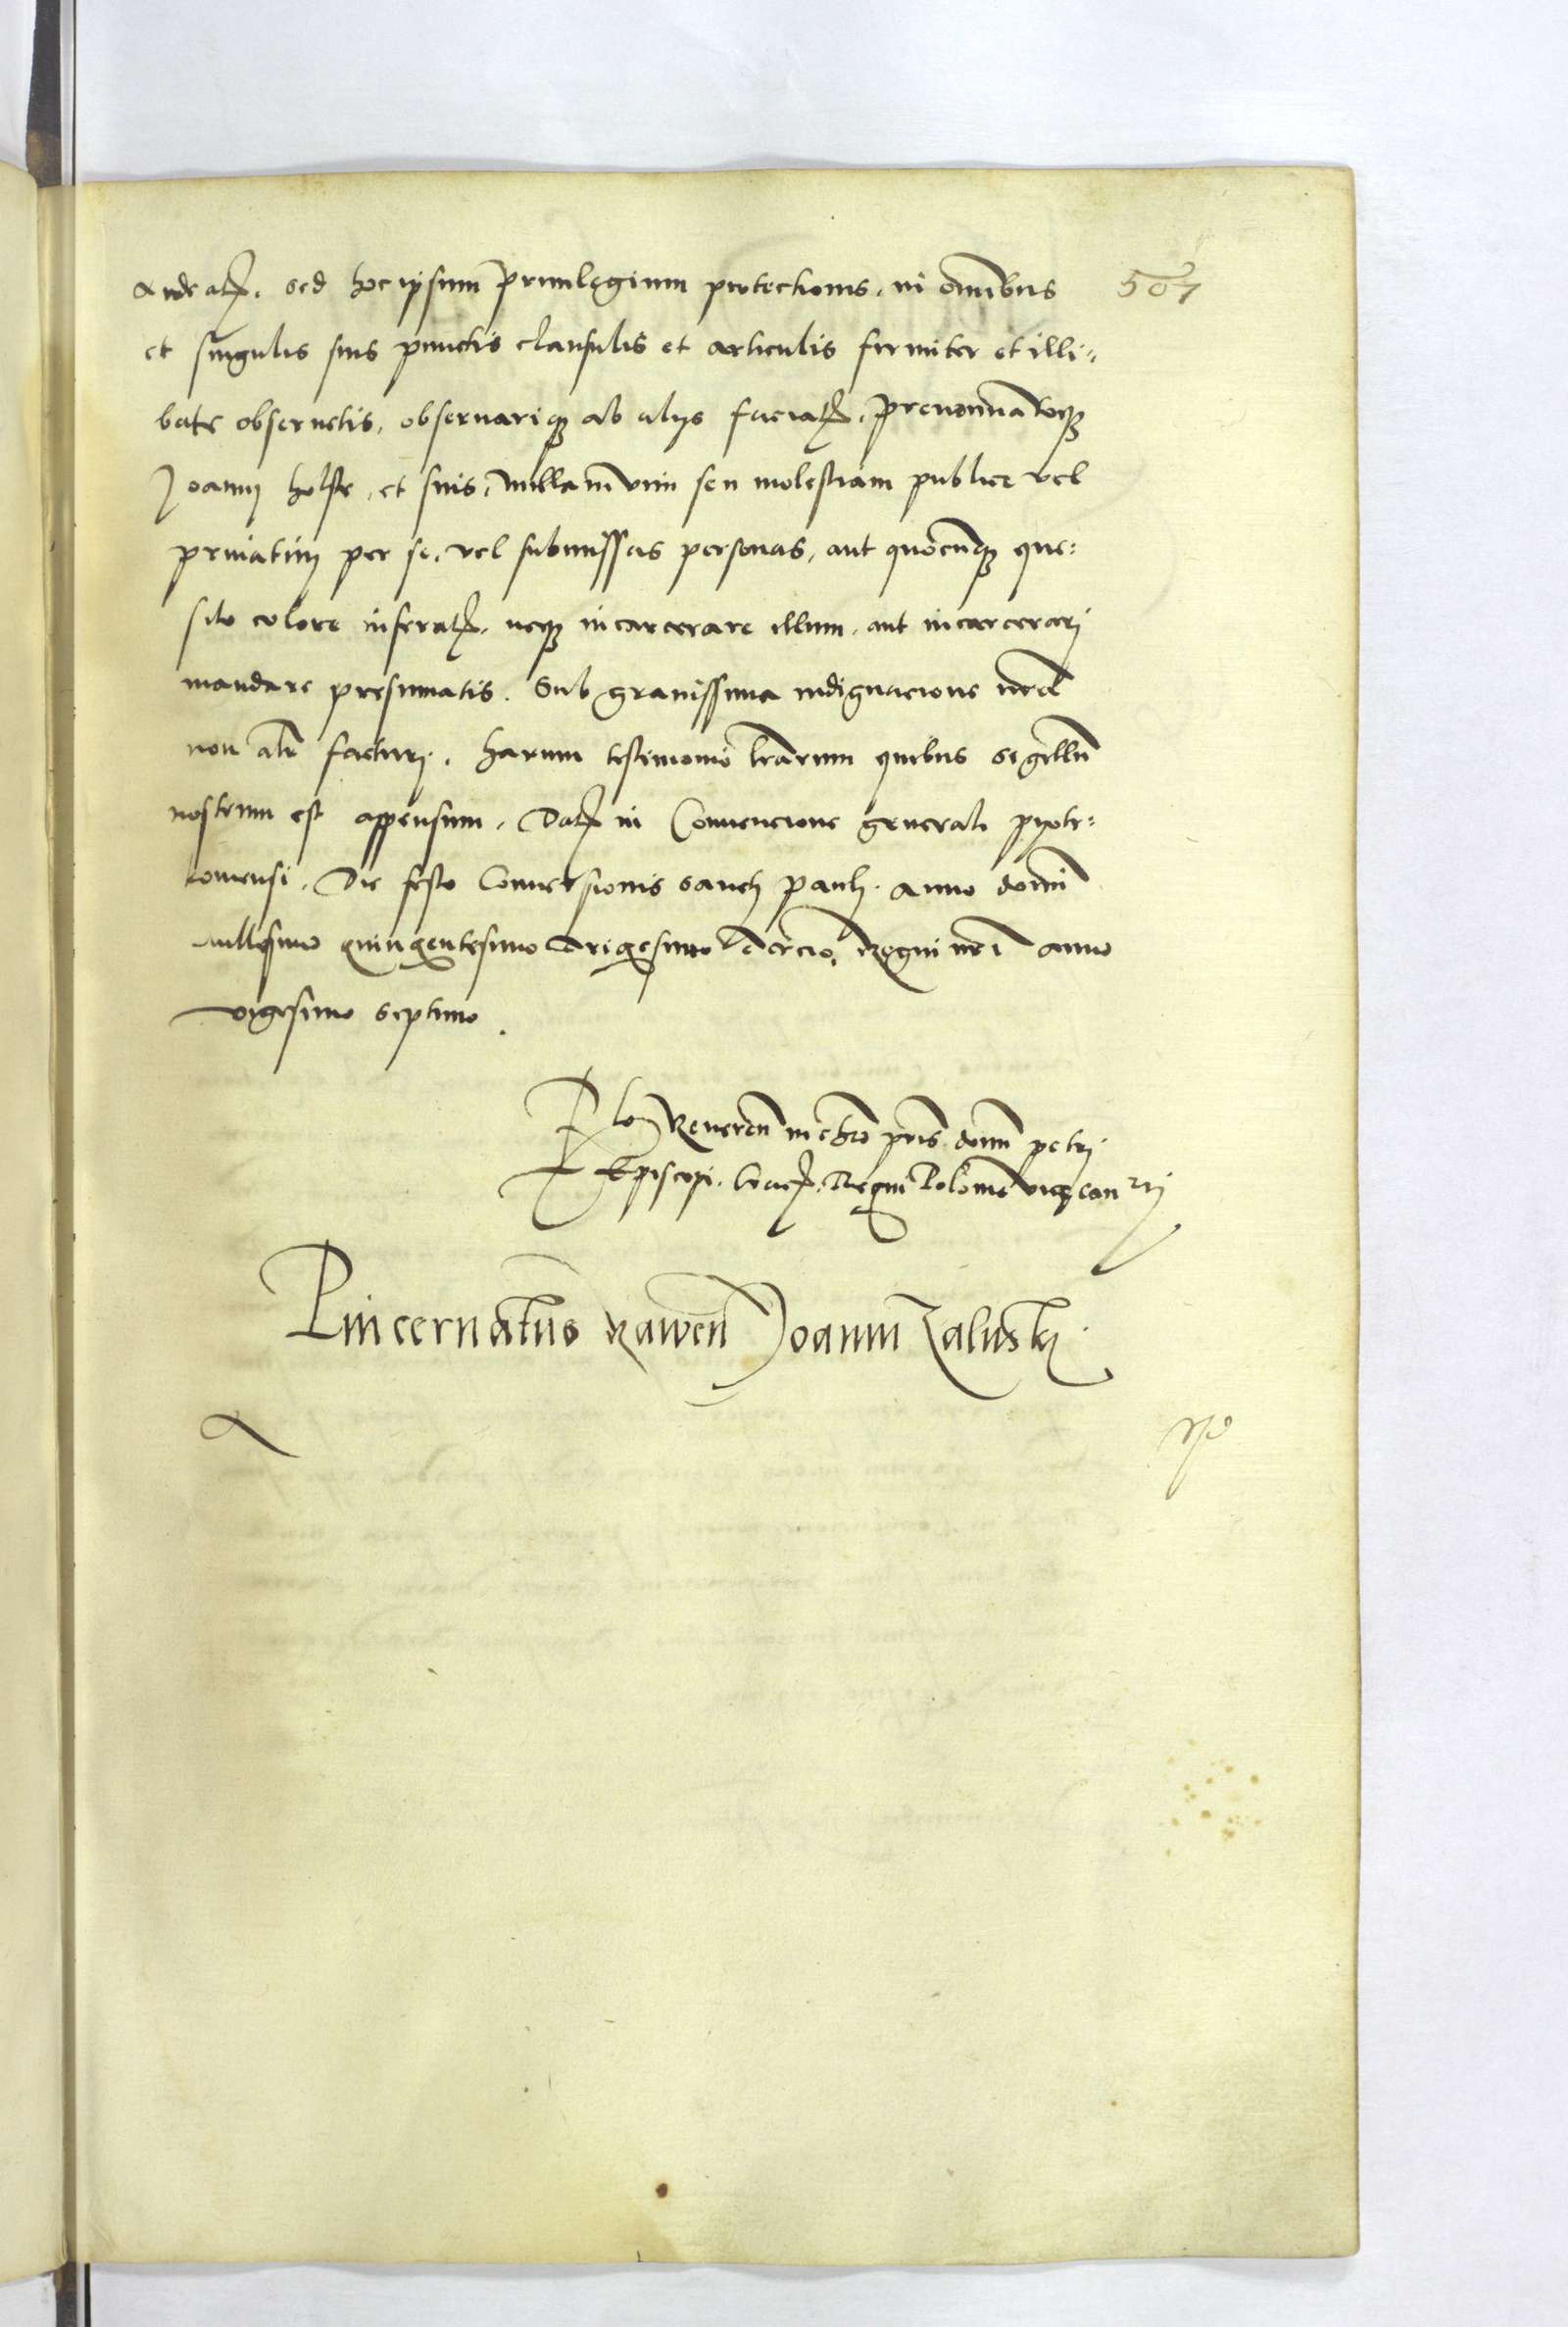 audeatis. sed hoc ipsum priuilegium protectionis, in omnibus 507
et singulis suis punctis clausulis et articulis firmiter et illi=
bate obseruetis, obseruarique ab alijs faciatis. Prenominatoque
Joanni holste, et suis, nullam vim seu molestiam publice vel
priuatim per se, vel submissas personas, aut quocunque que=
sito colore inferatis, neque incarcerare illum, aut incarcerari
mandare presumatis. Sub grauissima indignacione nra
non alr facturi. Harum testimonio lrarum quibus sigillum
nostrum est appensum. Datum in Conuencione generali pyotr=
couiensi. Die festo Conuersionis sancti Pauli. anno domini
millesimo quingentesimo Trigesimo Tercio. Regni nri anno
vigesimo septimo.
Rlo Reueren in chro pris domi petri
Episcopi Crac. Regni Polonie vicecan rij
Pincernatus Rawen Joanni Zaluski